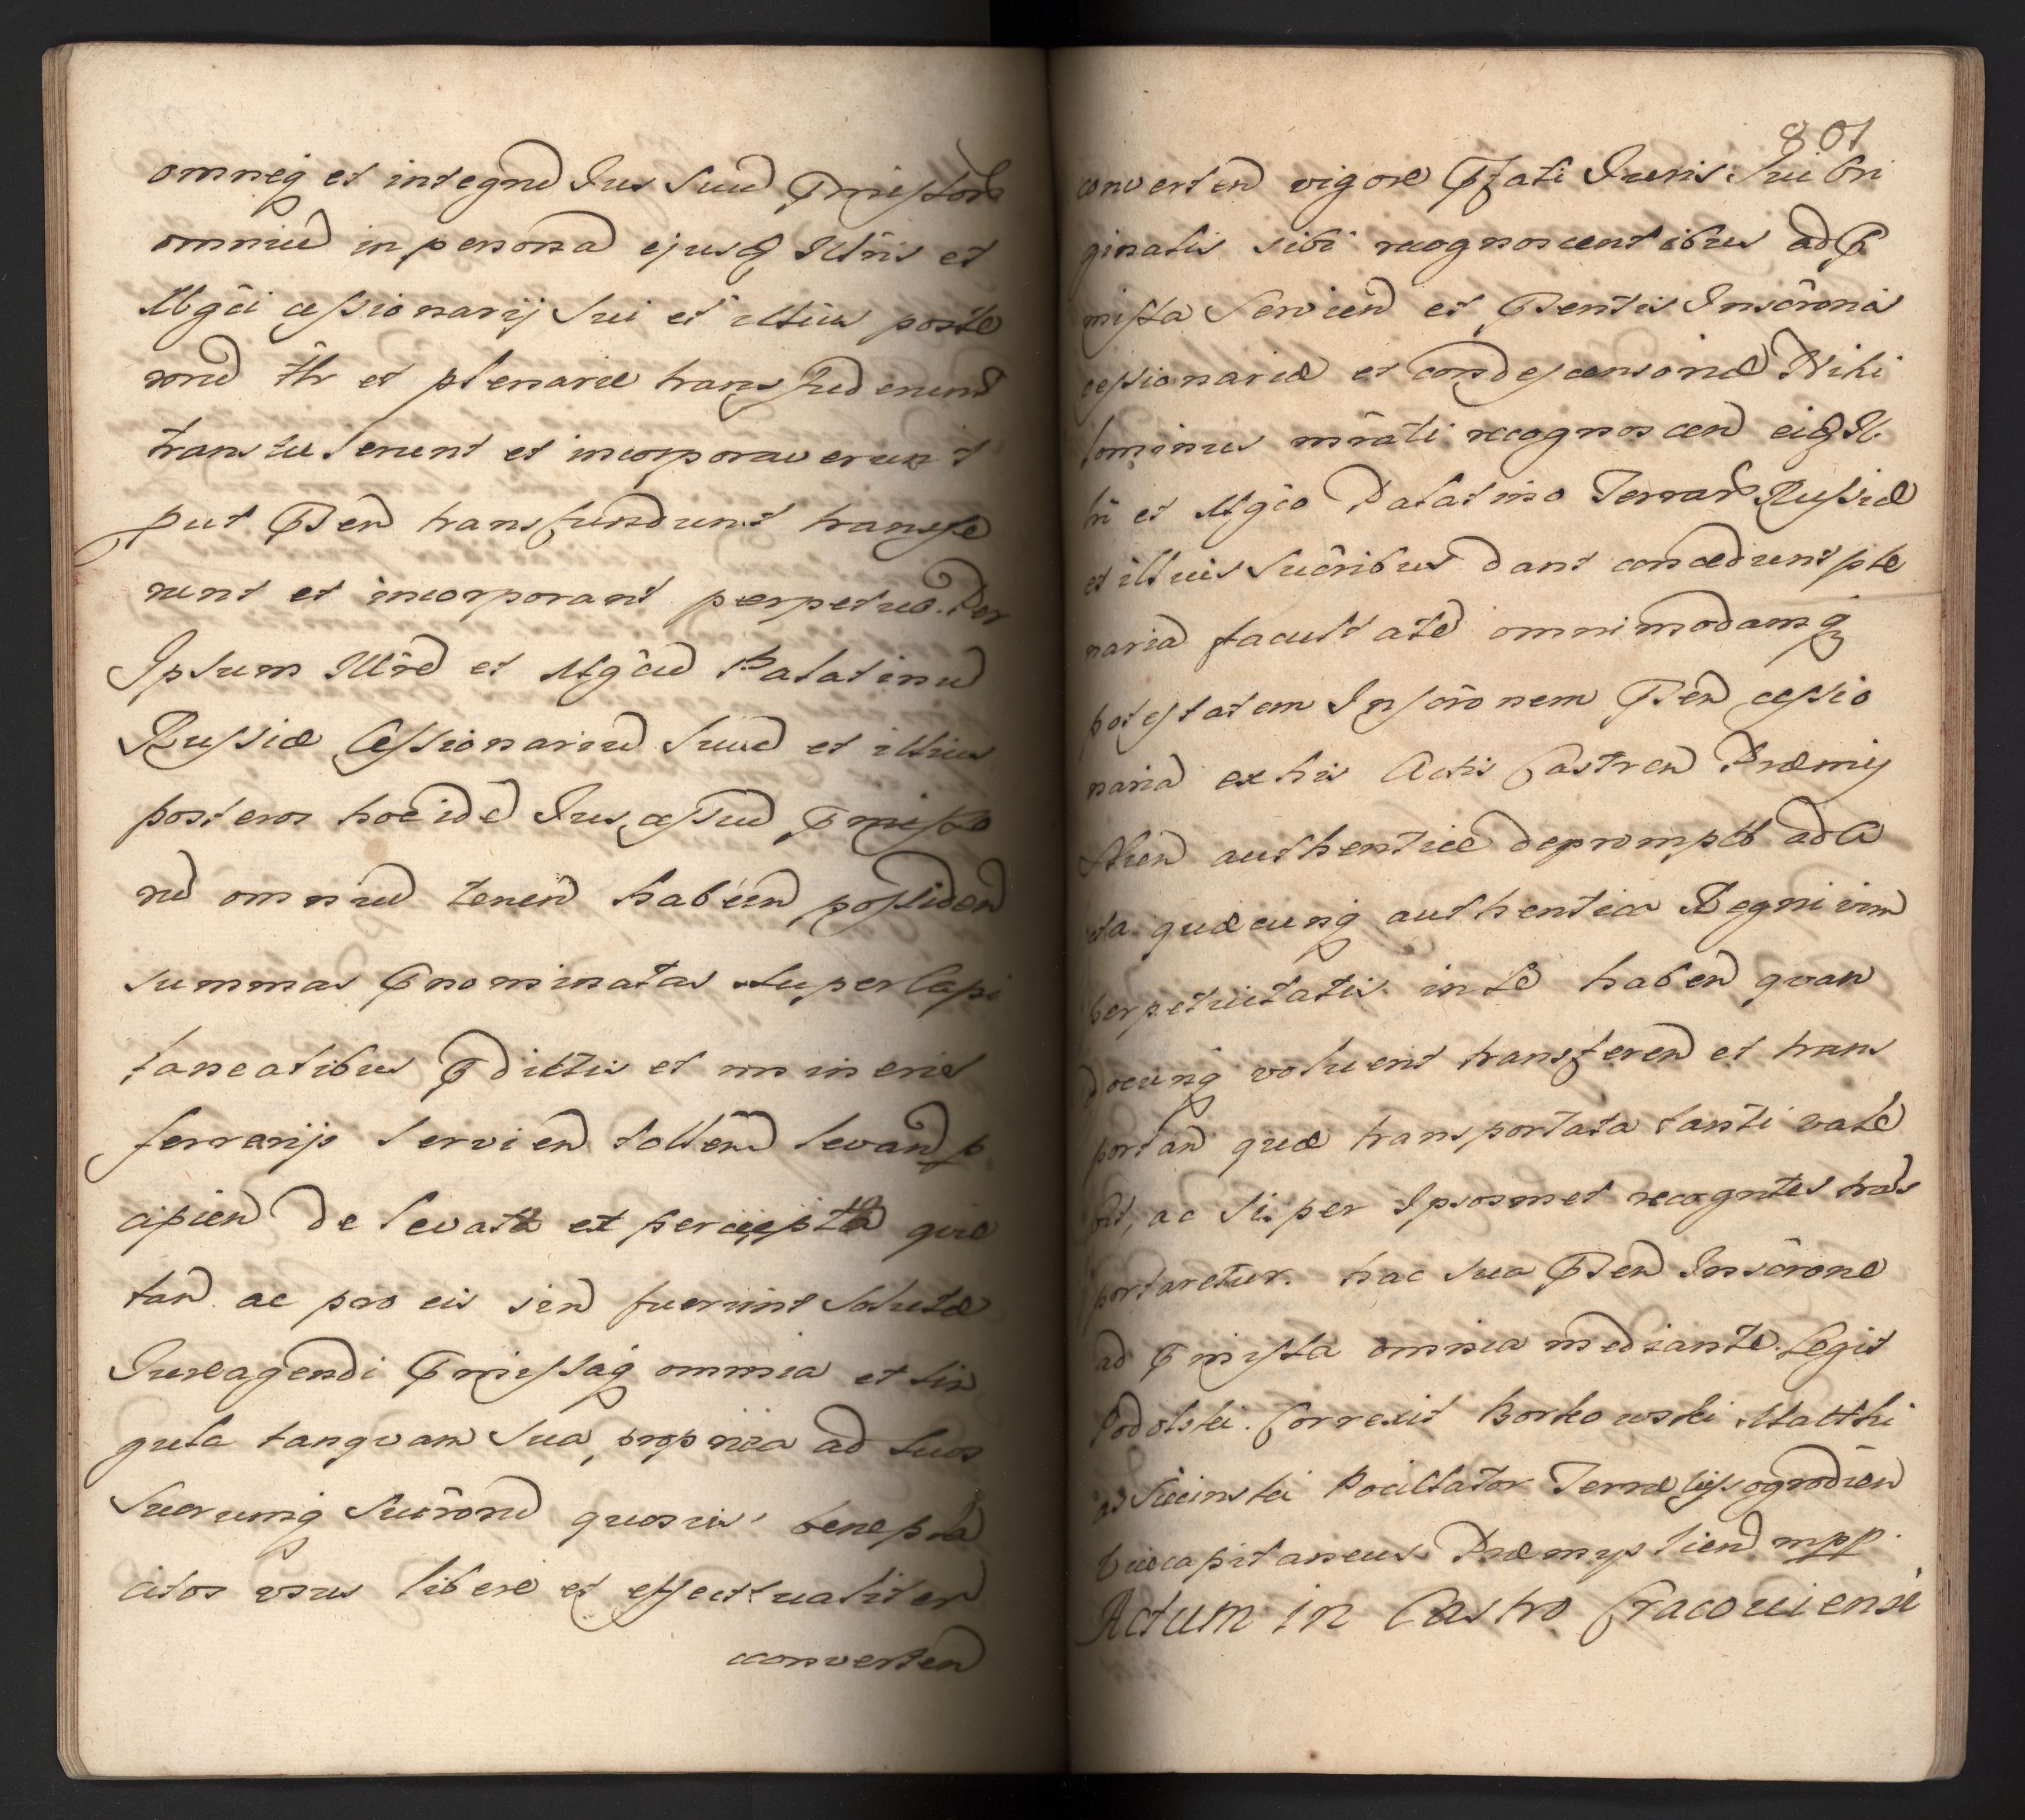 omneq et integrū Jus Suū Pmissorū
omniū in persona ejusq Illris et
Mgci cessionarij Sui et illius poste
rorū tlr et plenarie transfuderunt
transtulerunt et incorporaverunt
put Psen transfundunt transfe
runt et incorporant perpetuo. Per
Ipsum Illrē et Mgcū Palatinū
Russiæ Cessionariū Suū et illius
posteros hoc idē Jus cessū Pmisso
rū omniū tenen haben possiden
summas Pnominatas super Capi
taneatibus Pdictis et mineris
ferrarijs servien tollen levan p
cipien de levatis et perceptis quie
tan ac pro eis sen fuerint solutæ
Jure agendi Pmissaq omnia et sin
gula tanqvam Sua propria ad suos
Suorumq Sucrorū quosvis bene pla
citos usus libere et effectualiter
converten
801
converten vigore Pfati Juris Sui Ori
ginalis sibi recognoscentibus ad P
missa Servien et Psentis Inscronis
cessionariæ et condescensoriæ Nihi
lominus mrati recognoscen eidq Il
lri et Mgco Palatino Terrarū Russiæ
et illius Sucribus dant concedunt ple
nariā facultatē omnimodamq
potestatem Inscronem Psen cessio
nariā ex his Actis Castren Præmis
slien authentice depromptā ad A
cta quæcunq authentica Regni vim
perpetuitatis in se haben qvan
docunq voluerit transferen et trans
portan quæ transportata tanti vale
bit, ac si per Ipsosmet recogntes trās
portaretur. hac sua Psen Inscrone
ad Pmissa omnia mediante. Legit
Podolski. Correxit Borkowski Matthi
as Siecinski Pocillator Terræ
Vicecapitaneus Præmysliens mpp.
Actum in Castro Cracoviensi